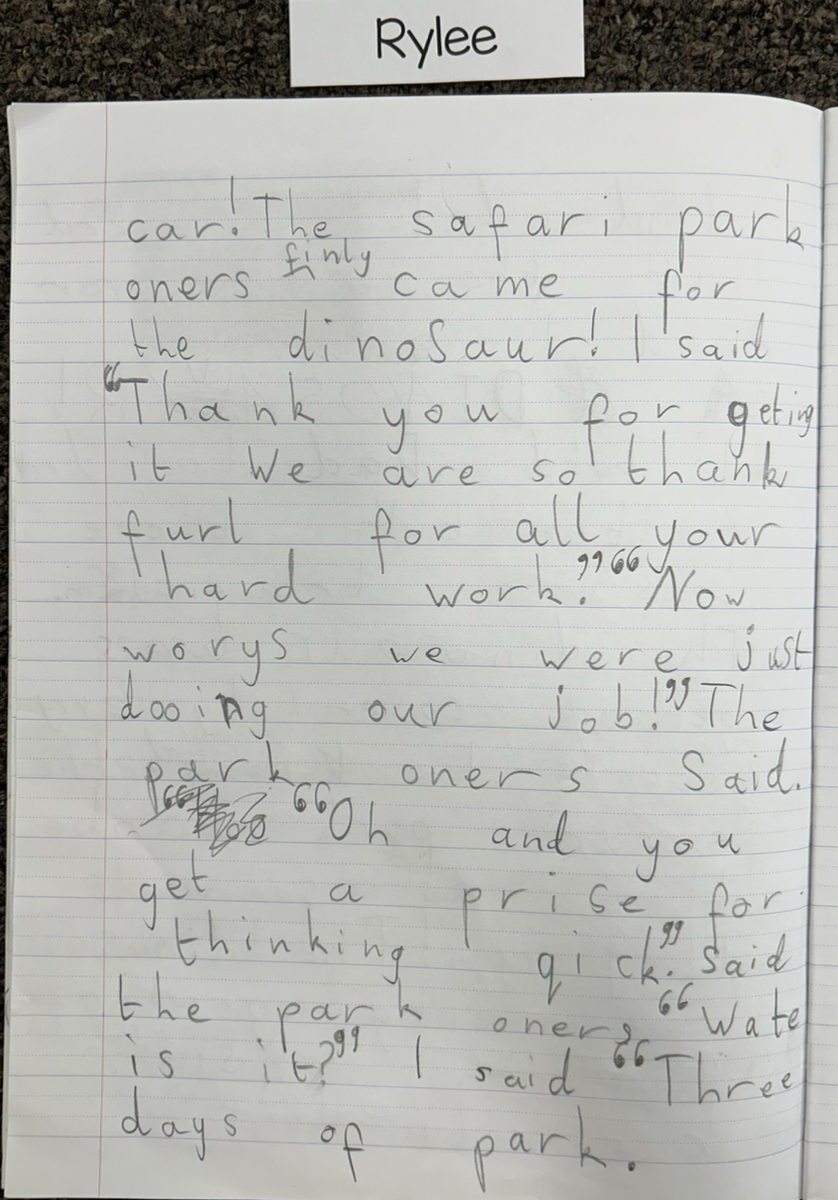 Rylee
car! The safari park
finly
oners came for
the dinosaur! I said
“Thank you for geting
it We are so thank
furl for all your
hard work.” “Now
worys we were just
dooing our job!” The
park oners said.
“Oh and you
get a prise for
thinking qick.” said
the park oners “Wate
is it?” I said “Three
days of park.